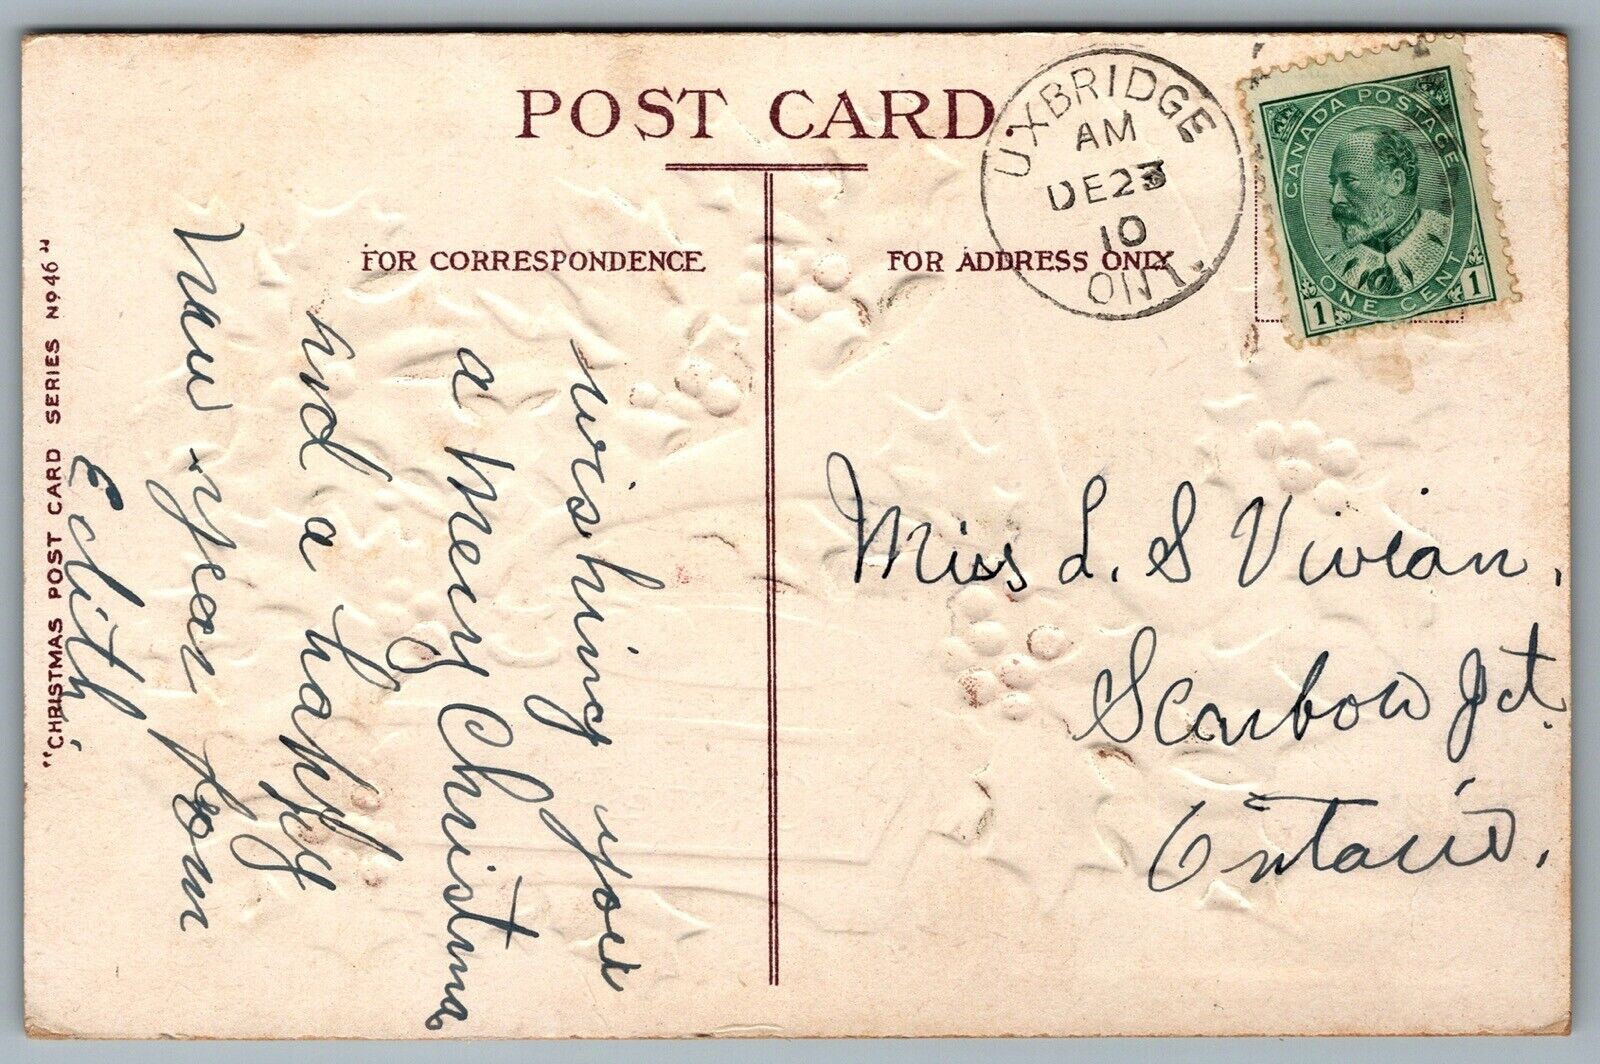 POST CARD
FOR CORRESPONDENCE
FOR ADDRESS ONLY
UXBRIDGE
AM
DE 23
10
ONT.
CANADA POSTAGE
1 ONE CENT 1
wishing you
a Mery Christmas
and a happy
new year from
Edith
Miss L. S Vivian,
Scarboro Jct.
Ontario,
"CHRISTMAS POST CARD SERIES Nº 46"